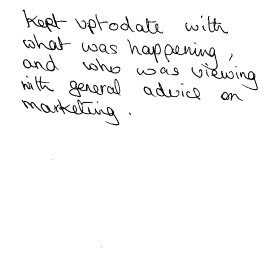 Kept uptodate with
what was happening,
and who was viewing
with general advice on
marketing.